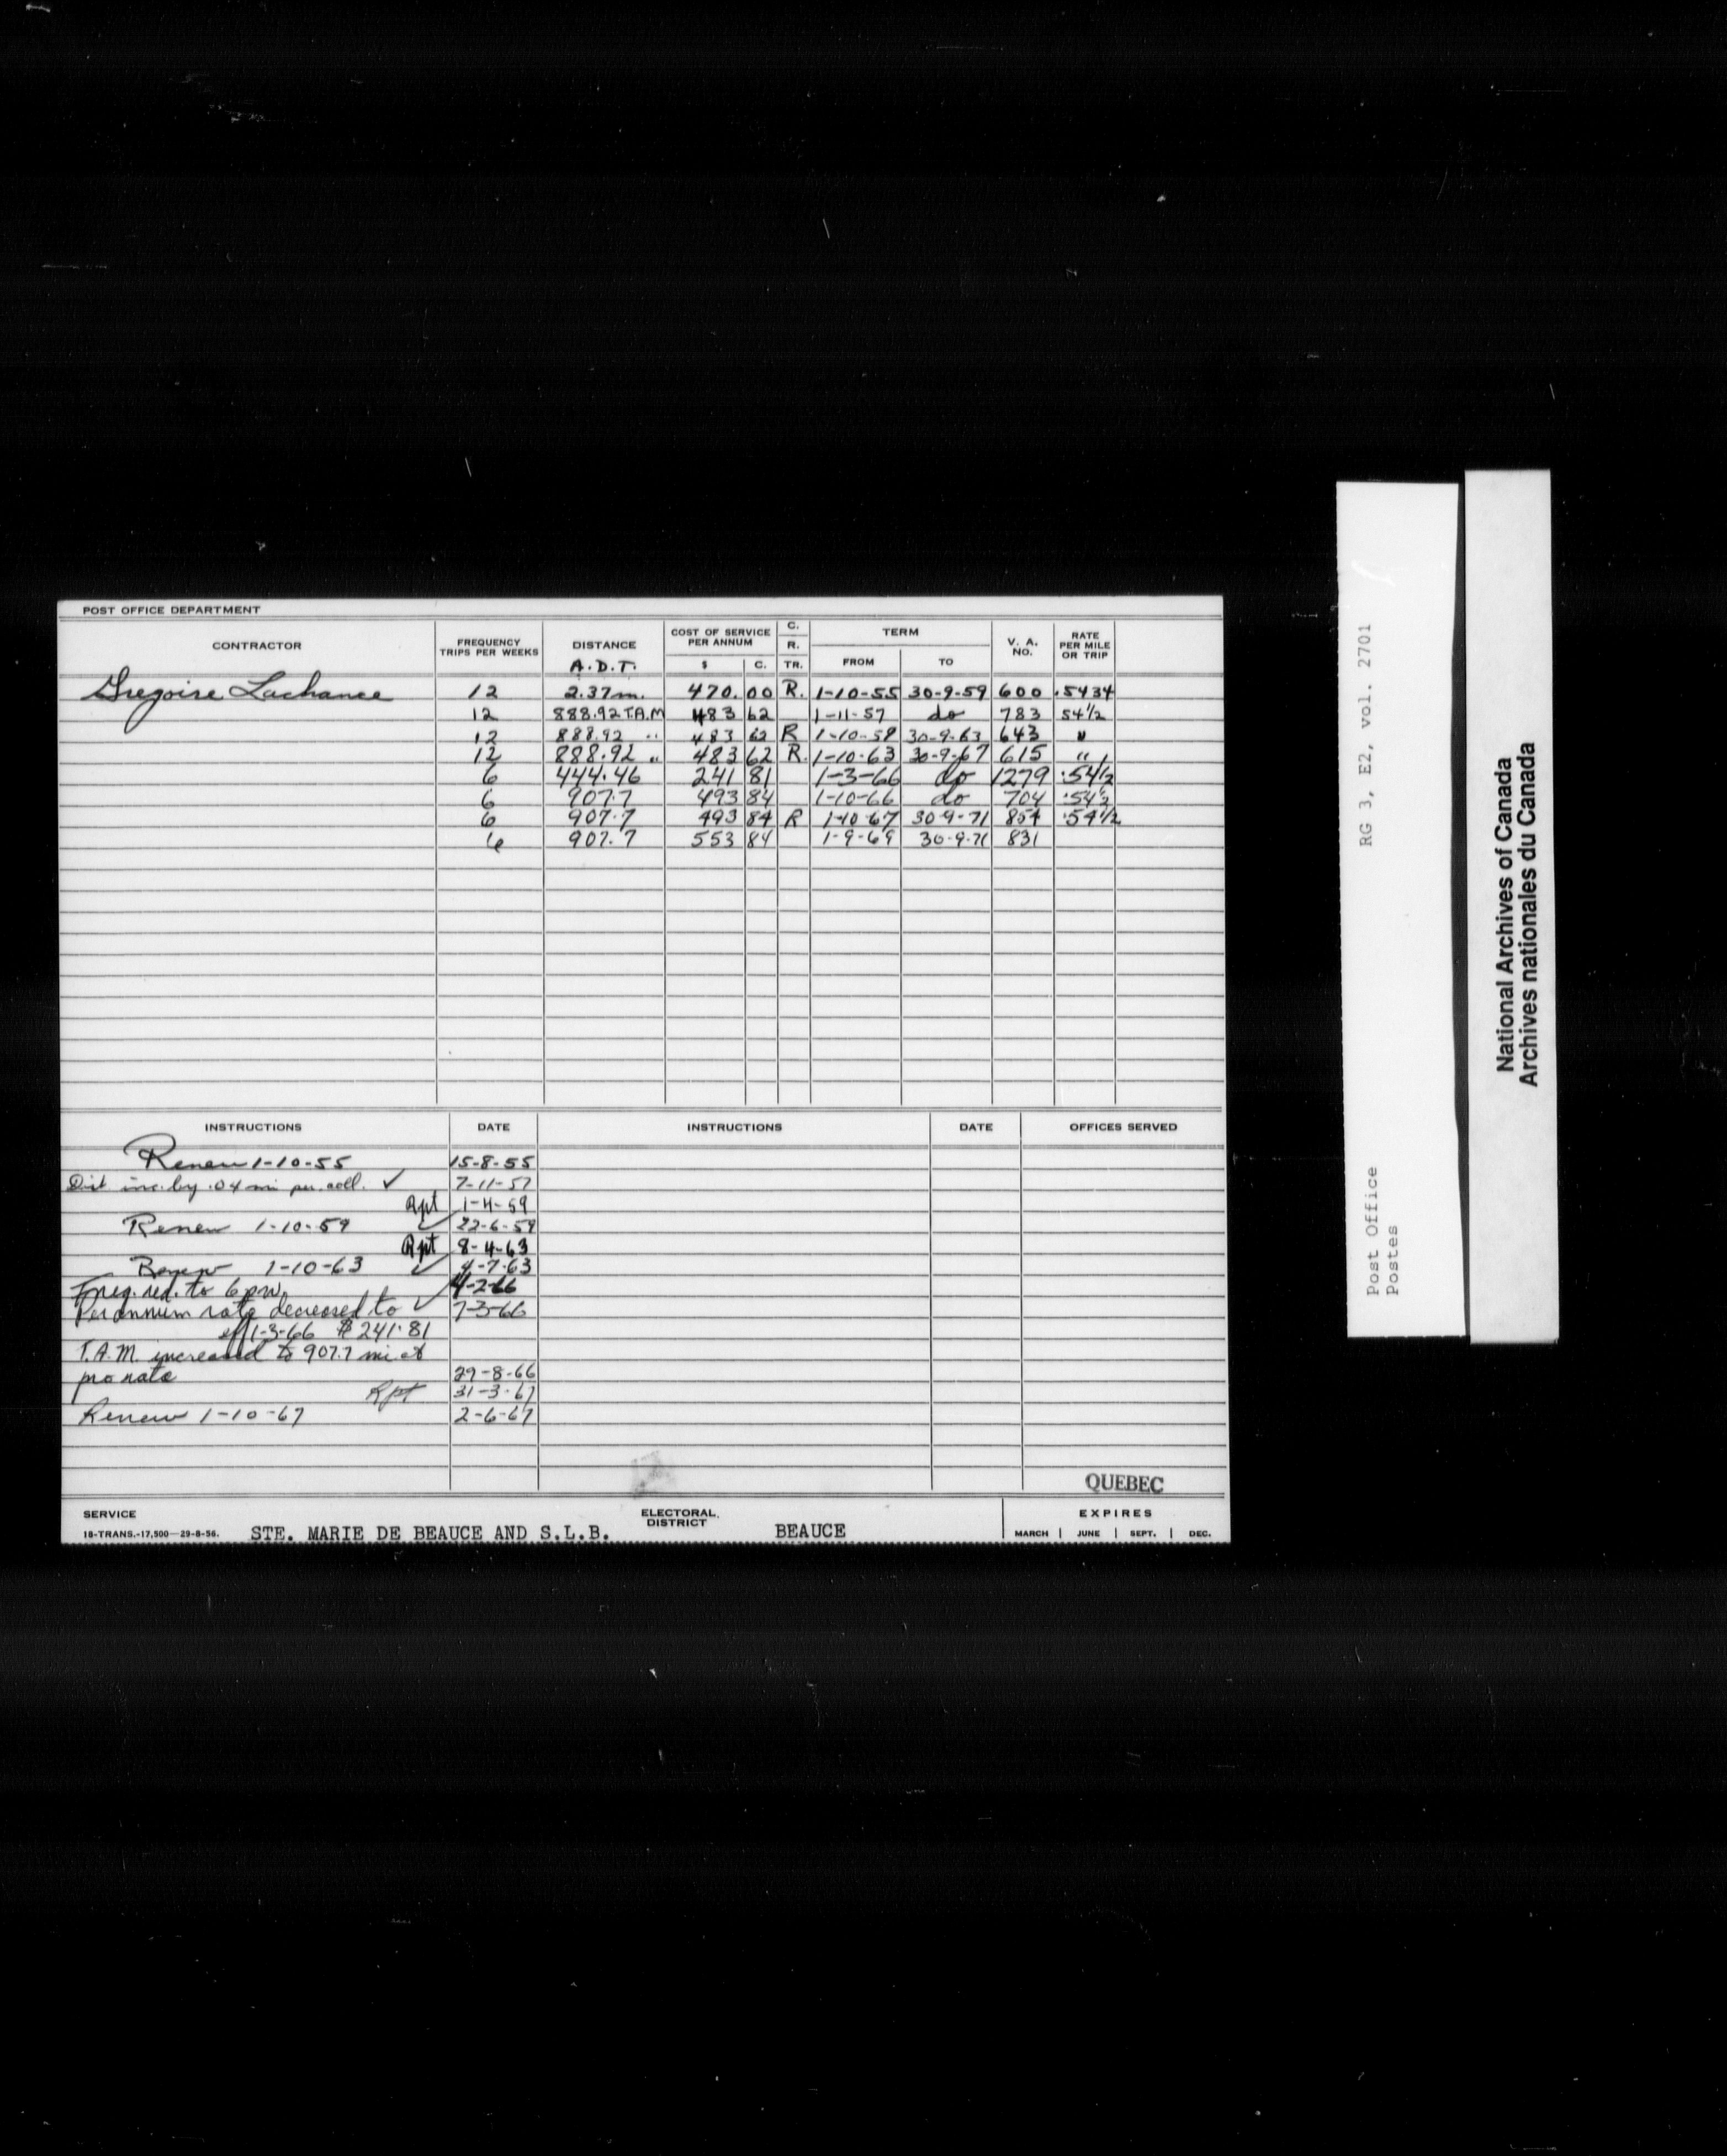 POST OFFICE DEPARTMENT
CONTRACTOR FREQUENCY TRIPS PER WEEKS DISTANCE A.D.T. COST OF SERVICE PER ANNUM $ C. C. R. TR. TERM FROM TO V. A. NO. RATE PER MILE OR TRIP
Gregoire Lachance 12 2.37m. 470.00 R. 1-10-55 30-9-59 600 .5434
12 888.92 T.A.M 483 62 1-11-57 do 783 54½
12 888.92 " 483 62 R 1-10-59 30-9-63 643 "
12 888.92 " 483 62 R. 1-10-63 30-9-67 615 "
6 444.46 241 81 1-3-66 do 1279 .54½
6 907.7 493 84 1-10-66 do 704 .54½
6 907.7 493 84 R 1-10-67 30-9-71 854 .54½
6 907.7 553 84 1-9-69 30-9-71 831
INSTRUCTIONS DATE INSTRUCTIONS DATE OFFICES SERVED
Renew 1-10-55 15-8-55
Dist inc. by .04 mi per. ✓ 7-11-57
Rpt 1-4-59
Renew 1-10-59 ✓ 22-6-59
Rpt 8-4-63
Renew 1-10-63 ✓ 4-7-63
Freq. red. to 6 pw. 4-2-66
Per annum rate decreased to ✓ 7-3-66
eff 1-3-66 $241.81
T.A.M. increased to 907.7 mi at
pro rata 29-8-66
Rpt 31-3-67
Renew 1-10-67 2-6-67
QUEBEC
SERVICE ELECTORAL DISTRICT EXPIRES
18-TRANS.-17,500—29-8-56. STE. MARIE DE BEAUCE AND S.L.B. BEAUCE MARCH | JUNE | SEPT. | DEC.
Post Office RG 3, E2, vol. 2701
Postes
National Archives of Canada
Archives nationales du Canada